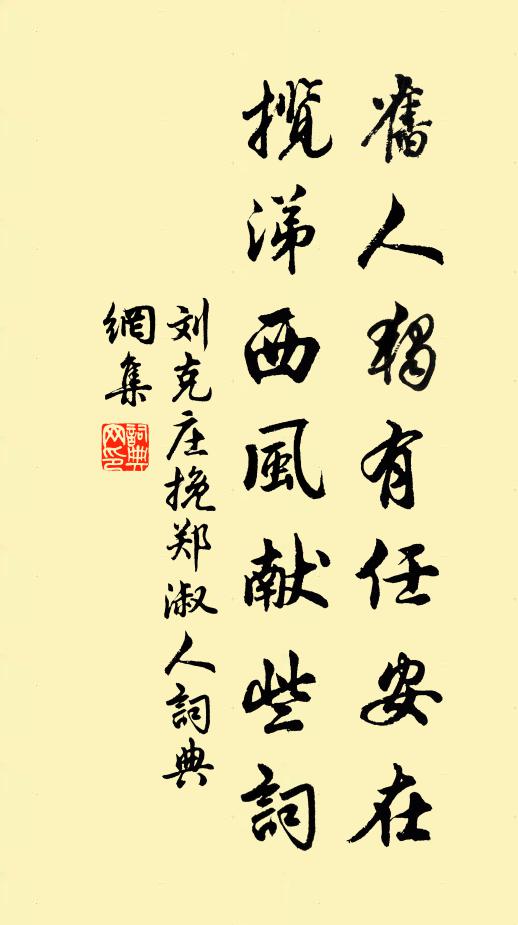 舊人獨有任安在
攬涕西風献些詞
刘克庄挽郑淑人詞典
網集
詞典
网印